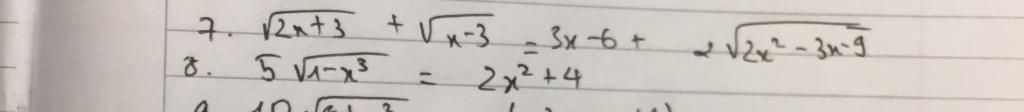 7. √(2x+3) + √(x-3) = 3x-6 + 2√(2x²-3x-9)
8. 5√(1-x³) = 2x²+4